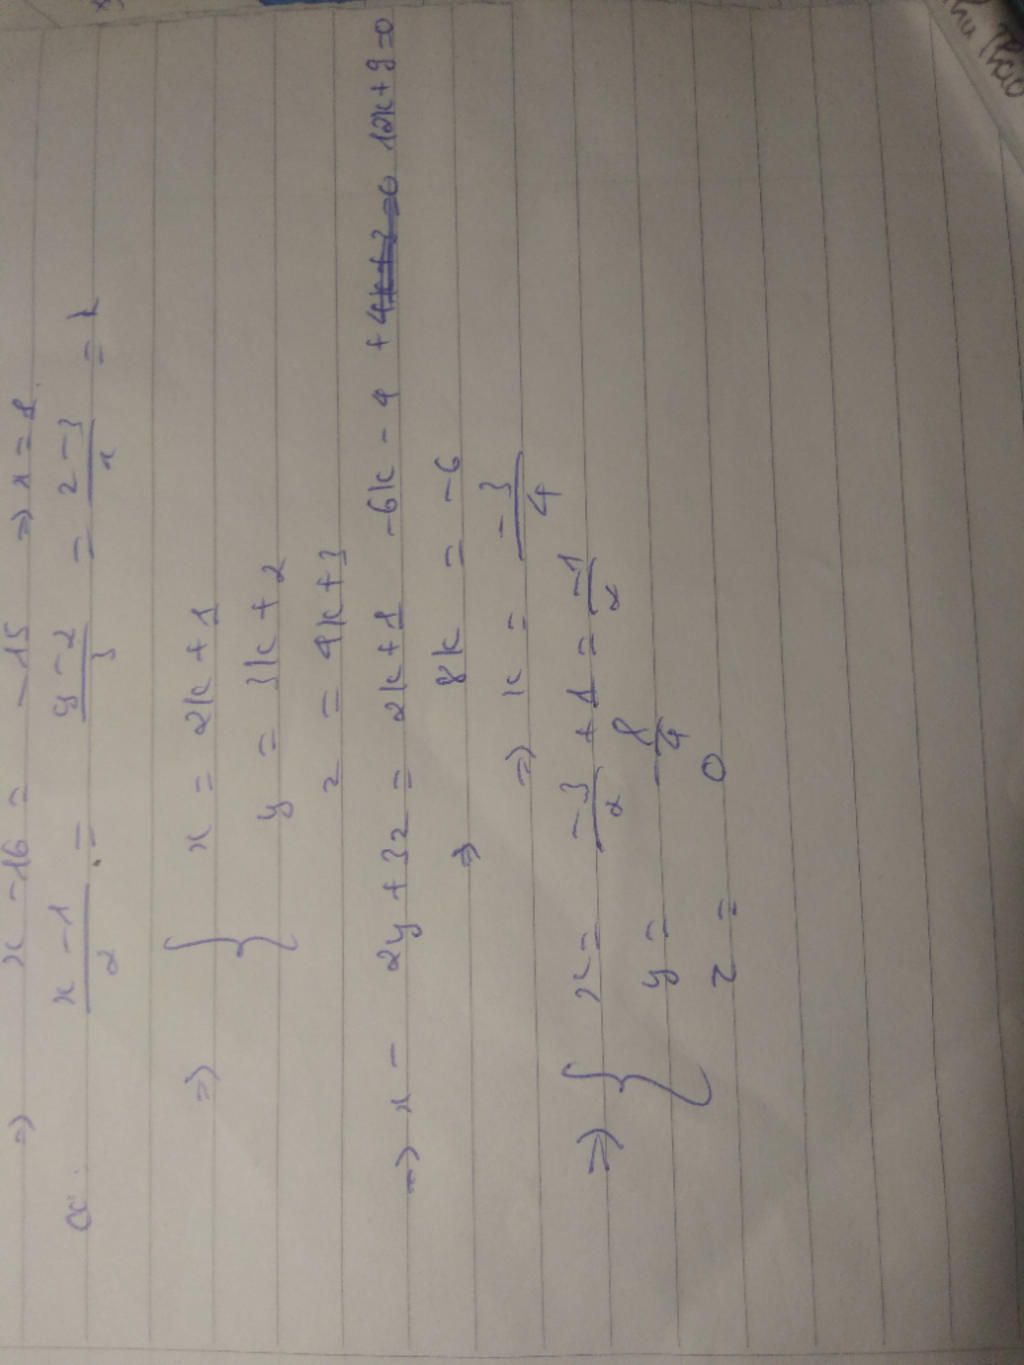 => x - 16 = - 15 => x = 1
a. \frac{x - 1}{2} = \frac{y - 2}{3} = \frac{z - 3}{4} = k
=> { x = 2k + 1
y = 3k + 2
z = 4k + 3
=> x - 2y + 3z = 2k + 1 - 6k - 4 + 12k + 9 = 0
=> 8k = - 6
=> k = \frac{- 3}{4}
=> { x = \frac{- 3}{2} + 1 = \frac{- 1}{2}
y =
z = 0
Thu Thảo